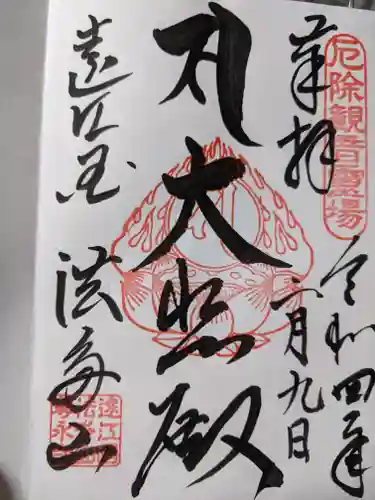 厄除観音霊場
奉拝
令和四年
月九日
大悲殿
遠江国 法多山
遠江